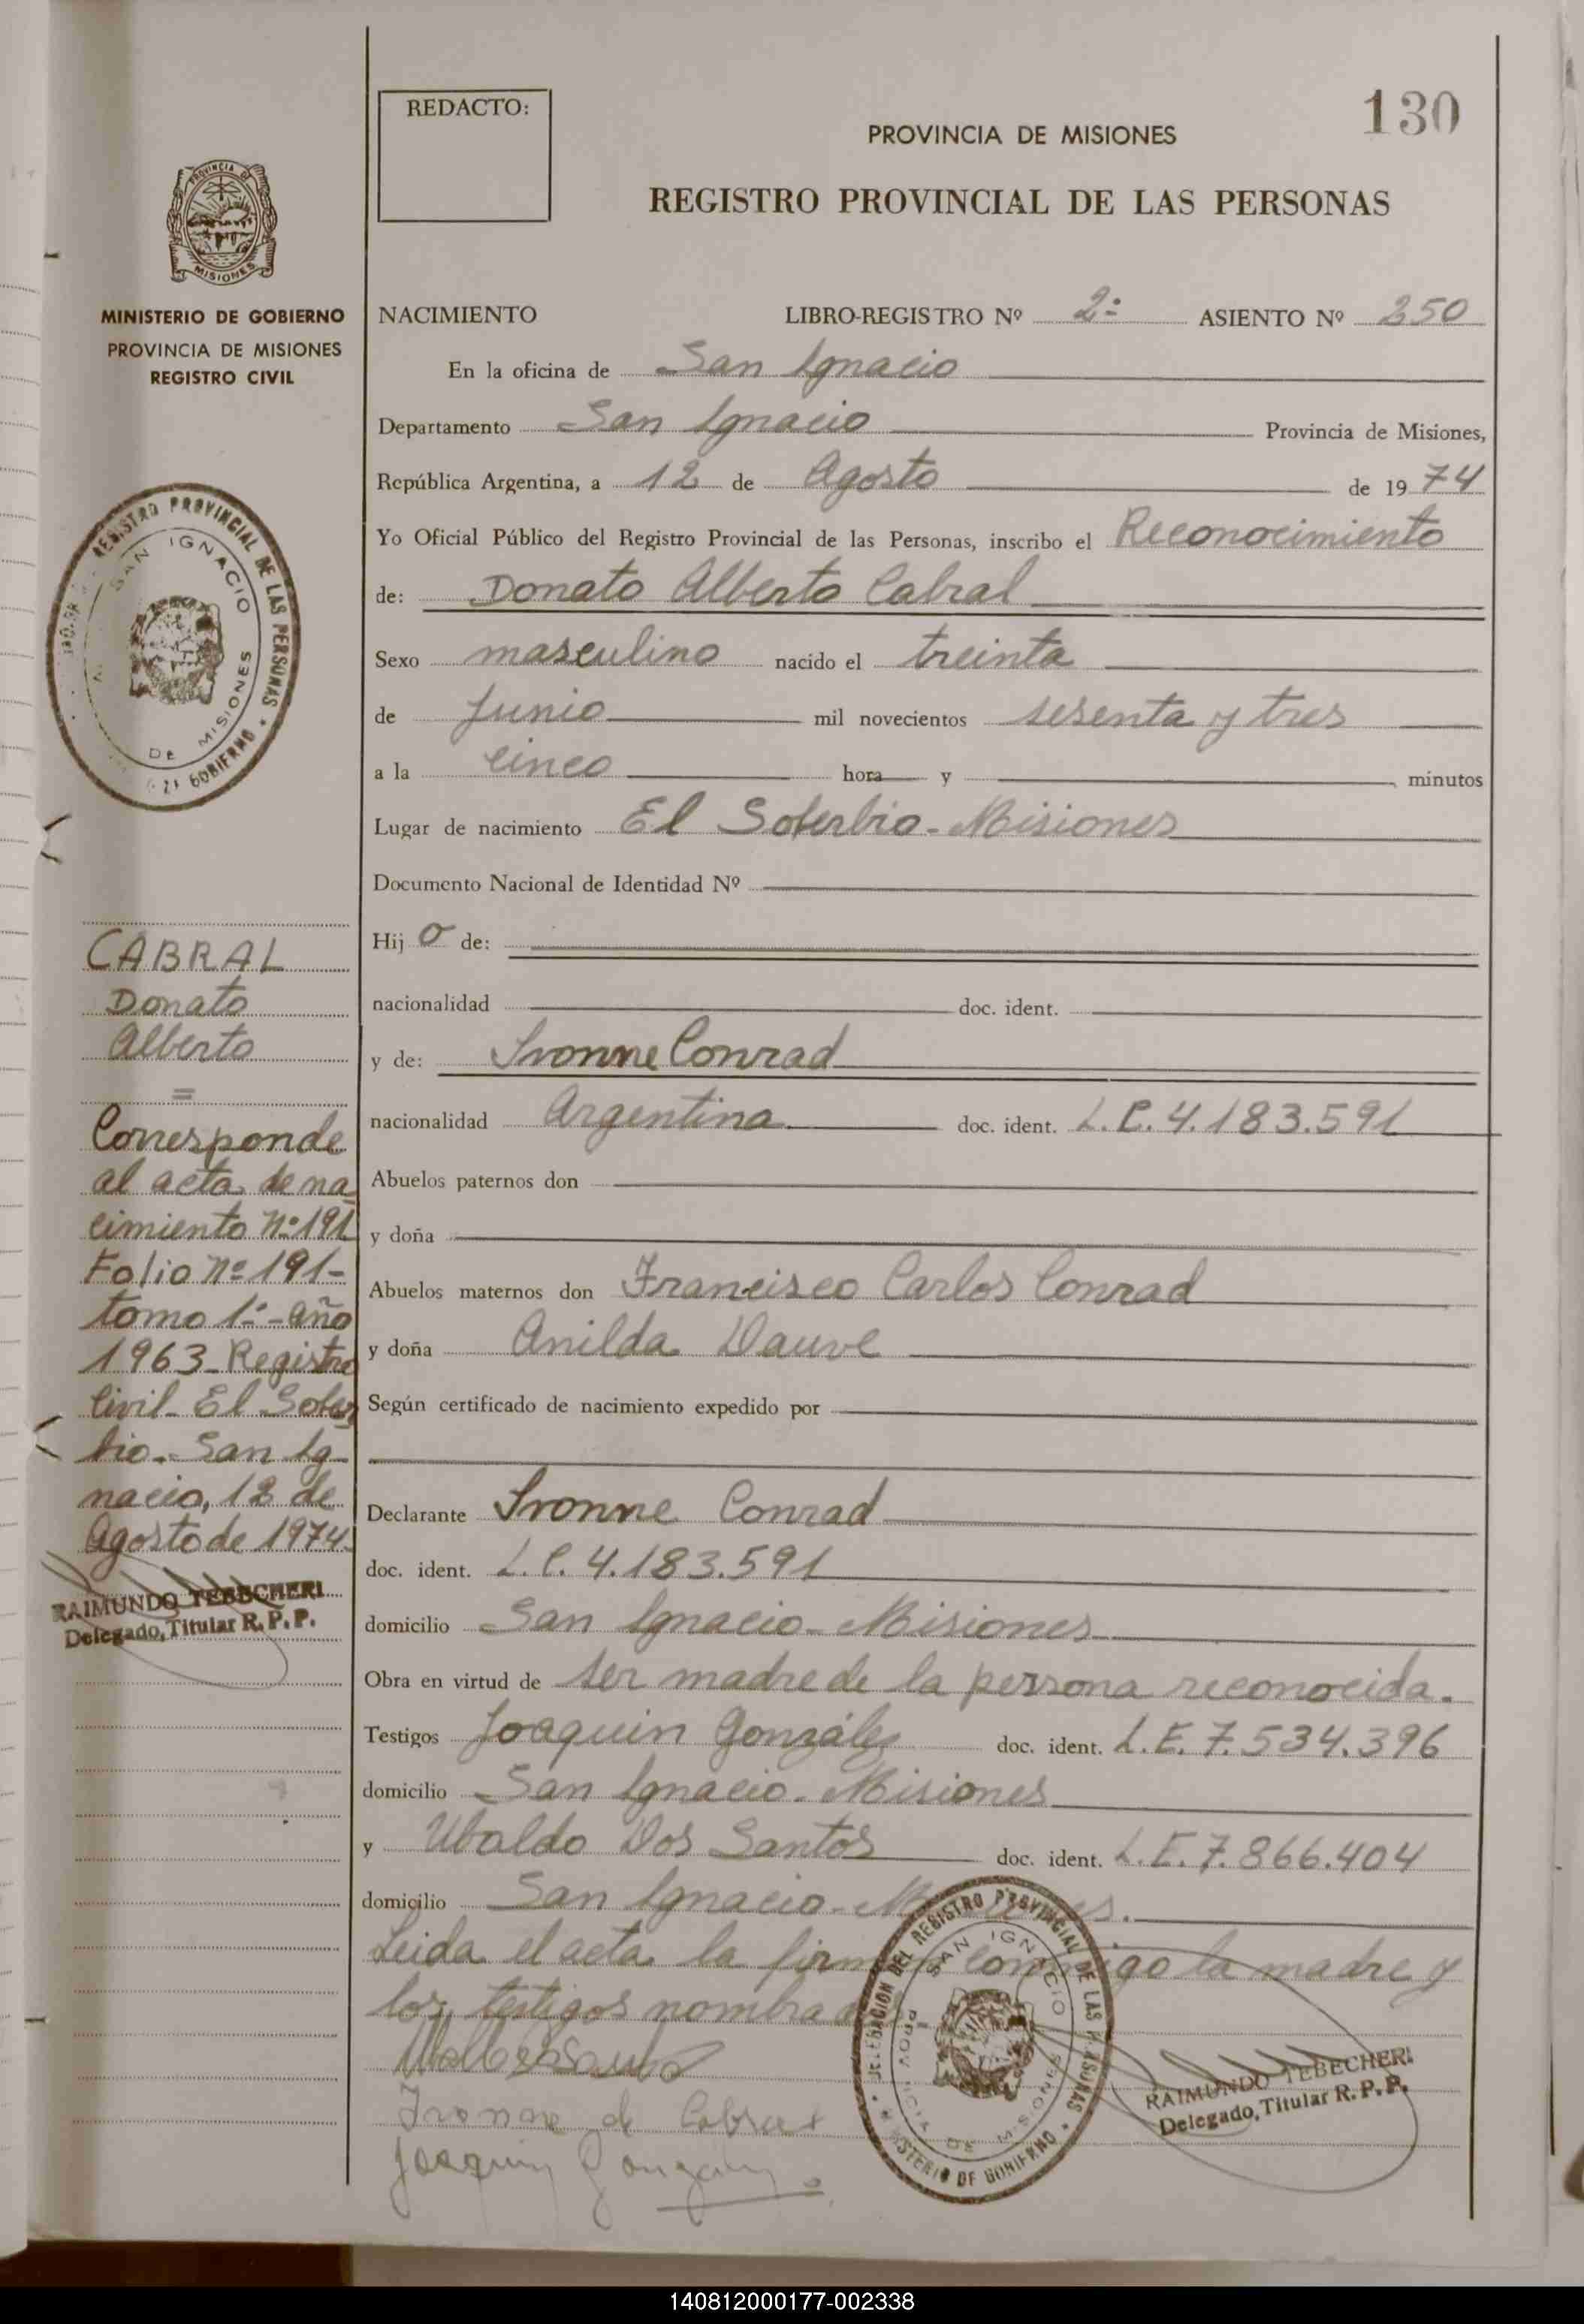 REDACTO:
130
PROVINCIA DE MISIONES
REGISTRO PROVINCIAL DE LAS PERSONAS
PROVINCIA DE
MISIONES
MINISTERIO DE GOBIERNO
PROVINCIA DE MISIONES
REGISTRO CIVIL
NACIMIENTO LIBRO-REGISTRO Nº 2º ASIENTO Nº 350
En la oficina de San Ignacio
Departamento San Ignacio Provincia de Misiones,
República Argentina, a 12 de Agosto de 1974
Yo Oficial Público del Registro Provincial de las Personas, inscribo el Reconocimiento
de: Donato Alberto Cabral
Sexo masculino nacido el treinta
de Junio mil novecientos sesenta y tres
a la cinco hora y minutos
Lugar de nacimiento El Soberbio - Misiones
Documento Nacional de Identidad Nº
Hijo de:
nacionalidad doc. ident.
y de: Ivonne Conrad
nacionalidad Argentina doc. ident. L.C. 4.183.591
Abuelos paternos don
y doña
Abuelos maternos don Francisco Carlos Conrad
y doña Anilda Dauve
Según certificado de nacimiento expedido por
Declarante Ivonne Conrad
doc. ident. L.C. 4.183.591
domicilio San Ignacio - Misiones
Obra en virtud de ser madre de la persona reconocida.
Testigos Joaquin Gonzáles doc. ident. L.E. 7.534.396
domicilio San Ignacio - Misiones
y Ubaldo Dos Santos doc. ident. L.E. 7.866.404
domicilio San Ignacio - Misiones.
Leida el acta la firman conmigo la madre y
los testigos nombrados.
Ivonne de Cabral
Joaquin Gonzales
REGISTRO PROVINCIAL DE LAS PERSONAS
SAN IGNACIO
DE MISIONES
GOBIERNO
CABRAL
Donato
Alberto
=
Corresponde
al acta de na
cimiento Nº 191
Folio Nº 191-
tomo 1º - año
1963 - Registro
Civil - El Sober
bio. - San Ig-
nacio, 12 de
Agosto de 1974.
RAIMUNDO TEBECHERI
Delegado, Titular R. P. P.
DELEGACION DEL REGISTRO PROVINCIAL DE LAS PERSONAS
MINISTERIO DE GOBIERNO
SAN IGNACIO
PROVINCIA DE MISIONES
RAIMUNDO TEBECHERI
Delegado, Titular R. P. P.
140812000177-002338